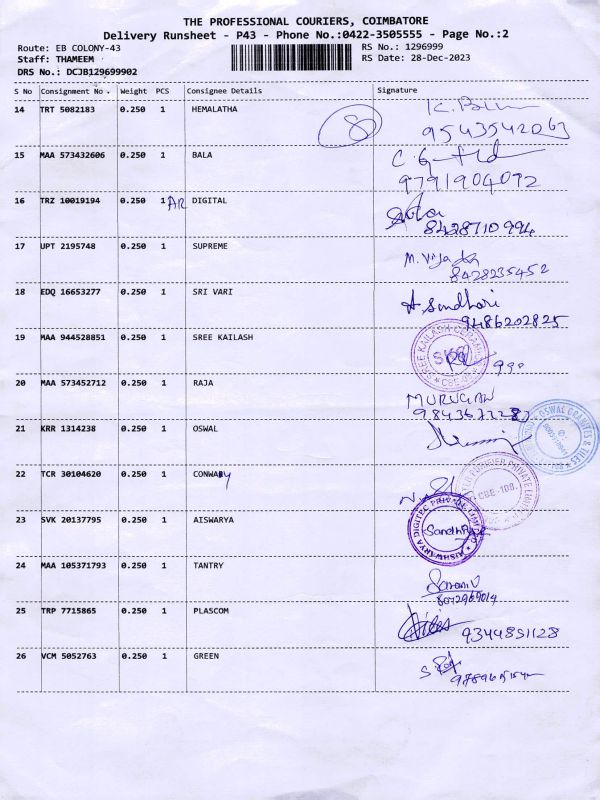 THE PROFESSIONAL COURIERS, COIMBATORE
Delivery Runsheet - P43 - Phone No.:0422-3505555 - Page No.:2
Route: EB COLONY-43
Staff: THAMEEM
DRS No.: DCJB129699902
RS No.: 1296999
RS Date: 28-Dec-2023
S No Consignment No . Weight PCS Consignee Details Signature
14 TRT 5082183 0.250 1 HEMALATHA 8
9543542063
15 MAA 573432606 0.250 1 BALA
9791904072
16 TRZ 10019194 0.250 1 AR DIGITAL
8428710994
17 UPT 2195748 0.250 1 SUPREME M. Vija
8428235452
18 EDQ 16653277 0.250 1 SRI VARI A Sandhari
9486202825
19 MAA 944528851 0.250 1 SREE KAILASH SREE KAILASH CERAMICS SKC CBE
20 MAA 573452712 0.250 1 RAJA MURUGAN
21 KRR 1314238 0.250 1 OSWAL OSWAL GRANITES & TILES
22 TCR 30104620 0.250 1 CONWAY PURIFIER PRIVATE LIMITED CBE-108.
23 SVK 20137795 0.250 1 AISWARYA AISHWARYA DIGITEC PRIVATE LIMITED Sandhya
24 MAA 105371793 0.250 1 TANTRY Saravi V
25 TRP 7715865 0.250 1 PLASCOM 9344831128
26 VCM 5052763 0.250 1 GREEN